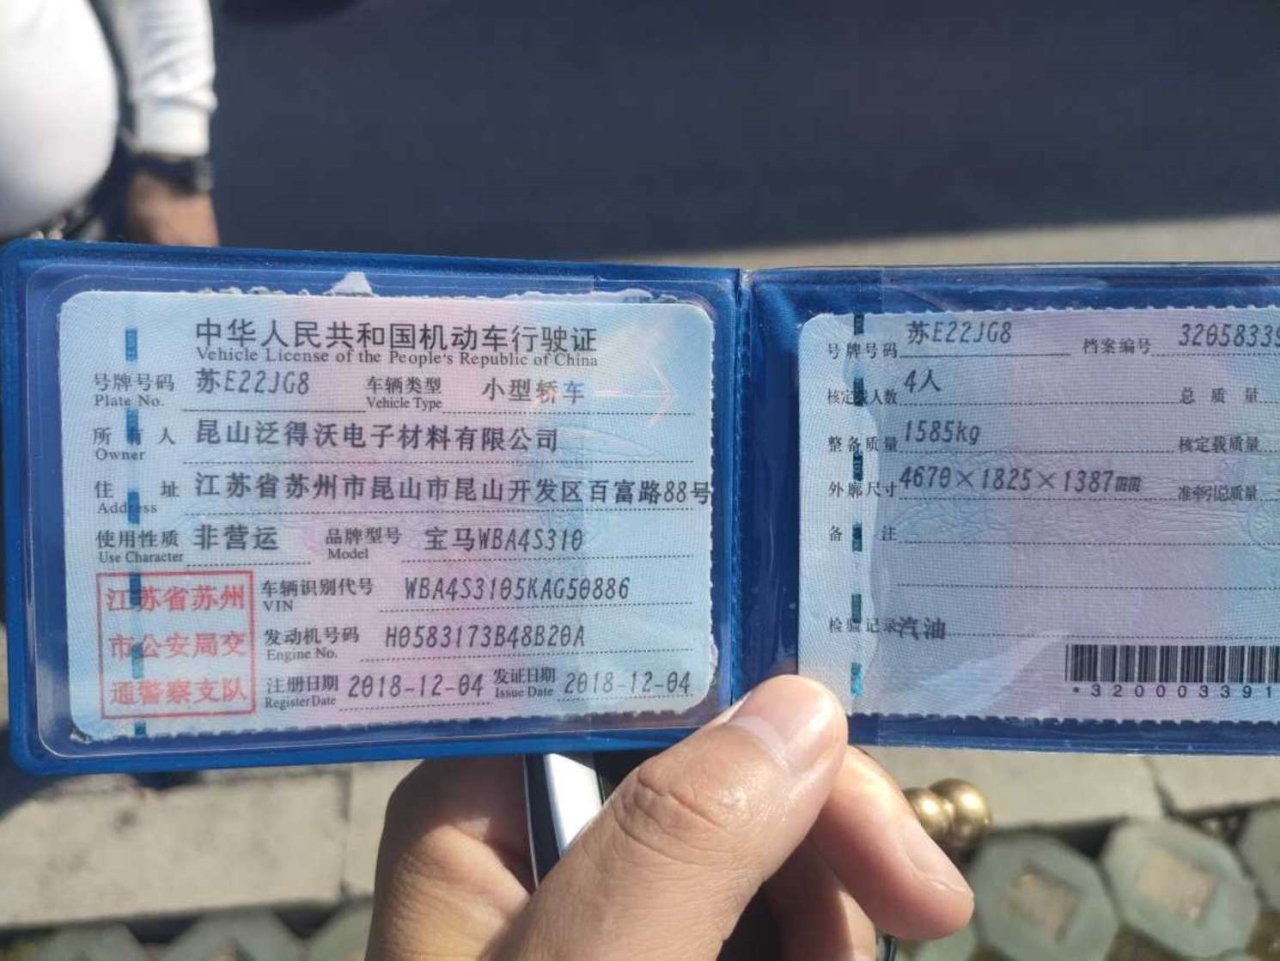 中华人民共和国机动车行驶证
Vehicle License of the People's Republic of China
号牌号码 苏E22JG8 车辆类型 小型轿车
Plate No. Vehicle Type
所有人 昆山泛得沃电子材料有限公司
Owner
住址 江苏省苏州市昆山市昆山开发区百富路88号
Address
使用性质 非营运 品牌型号 宝马WBA4S310
Use Character Model
江苏省苏州
市公安局交
通警察支队
车辆识别代号 WBA4S3105KAG50886
VIN
发动机号码 H0583173B48B20A
Engine No.
注册日期 2018-12-04 发证日期 2018-12-04
Register Date Issue Date
号牌号码 苏E22JG8 档案编号 32058339
核定载人数 4人 总质量
整备质量 1585kg 核定载质量
外廓尺寸 4670×1825×1387mm 准牵引总质量
备注
检验记录 汽油
*320003391